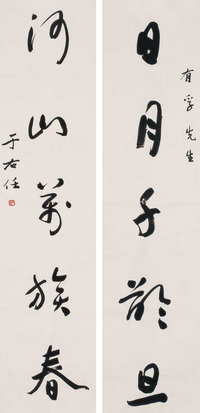 有孚先生
日月千齡旦
河山萬族春
于右任